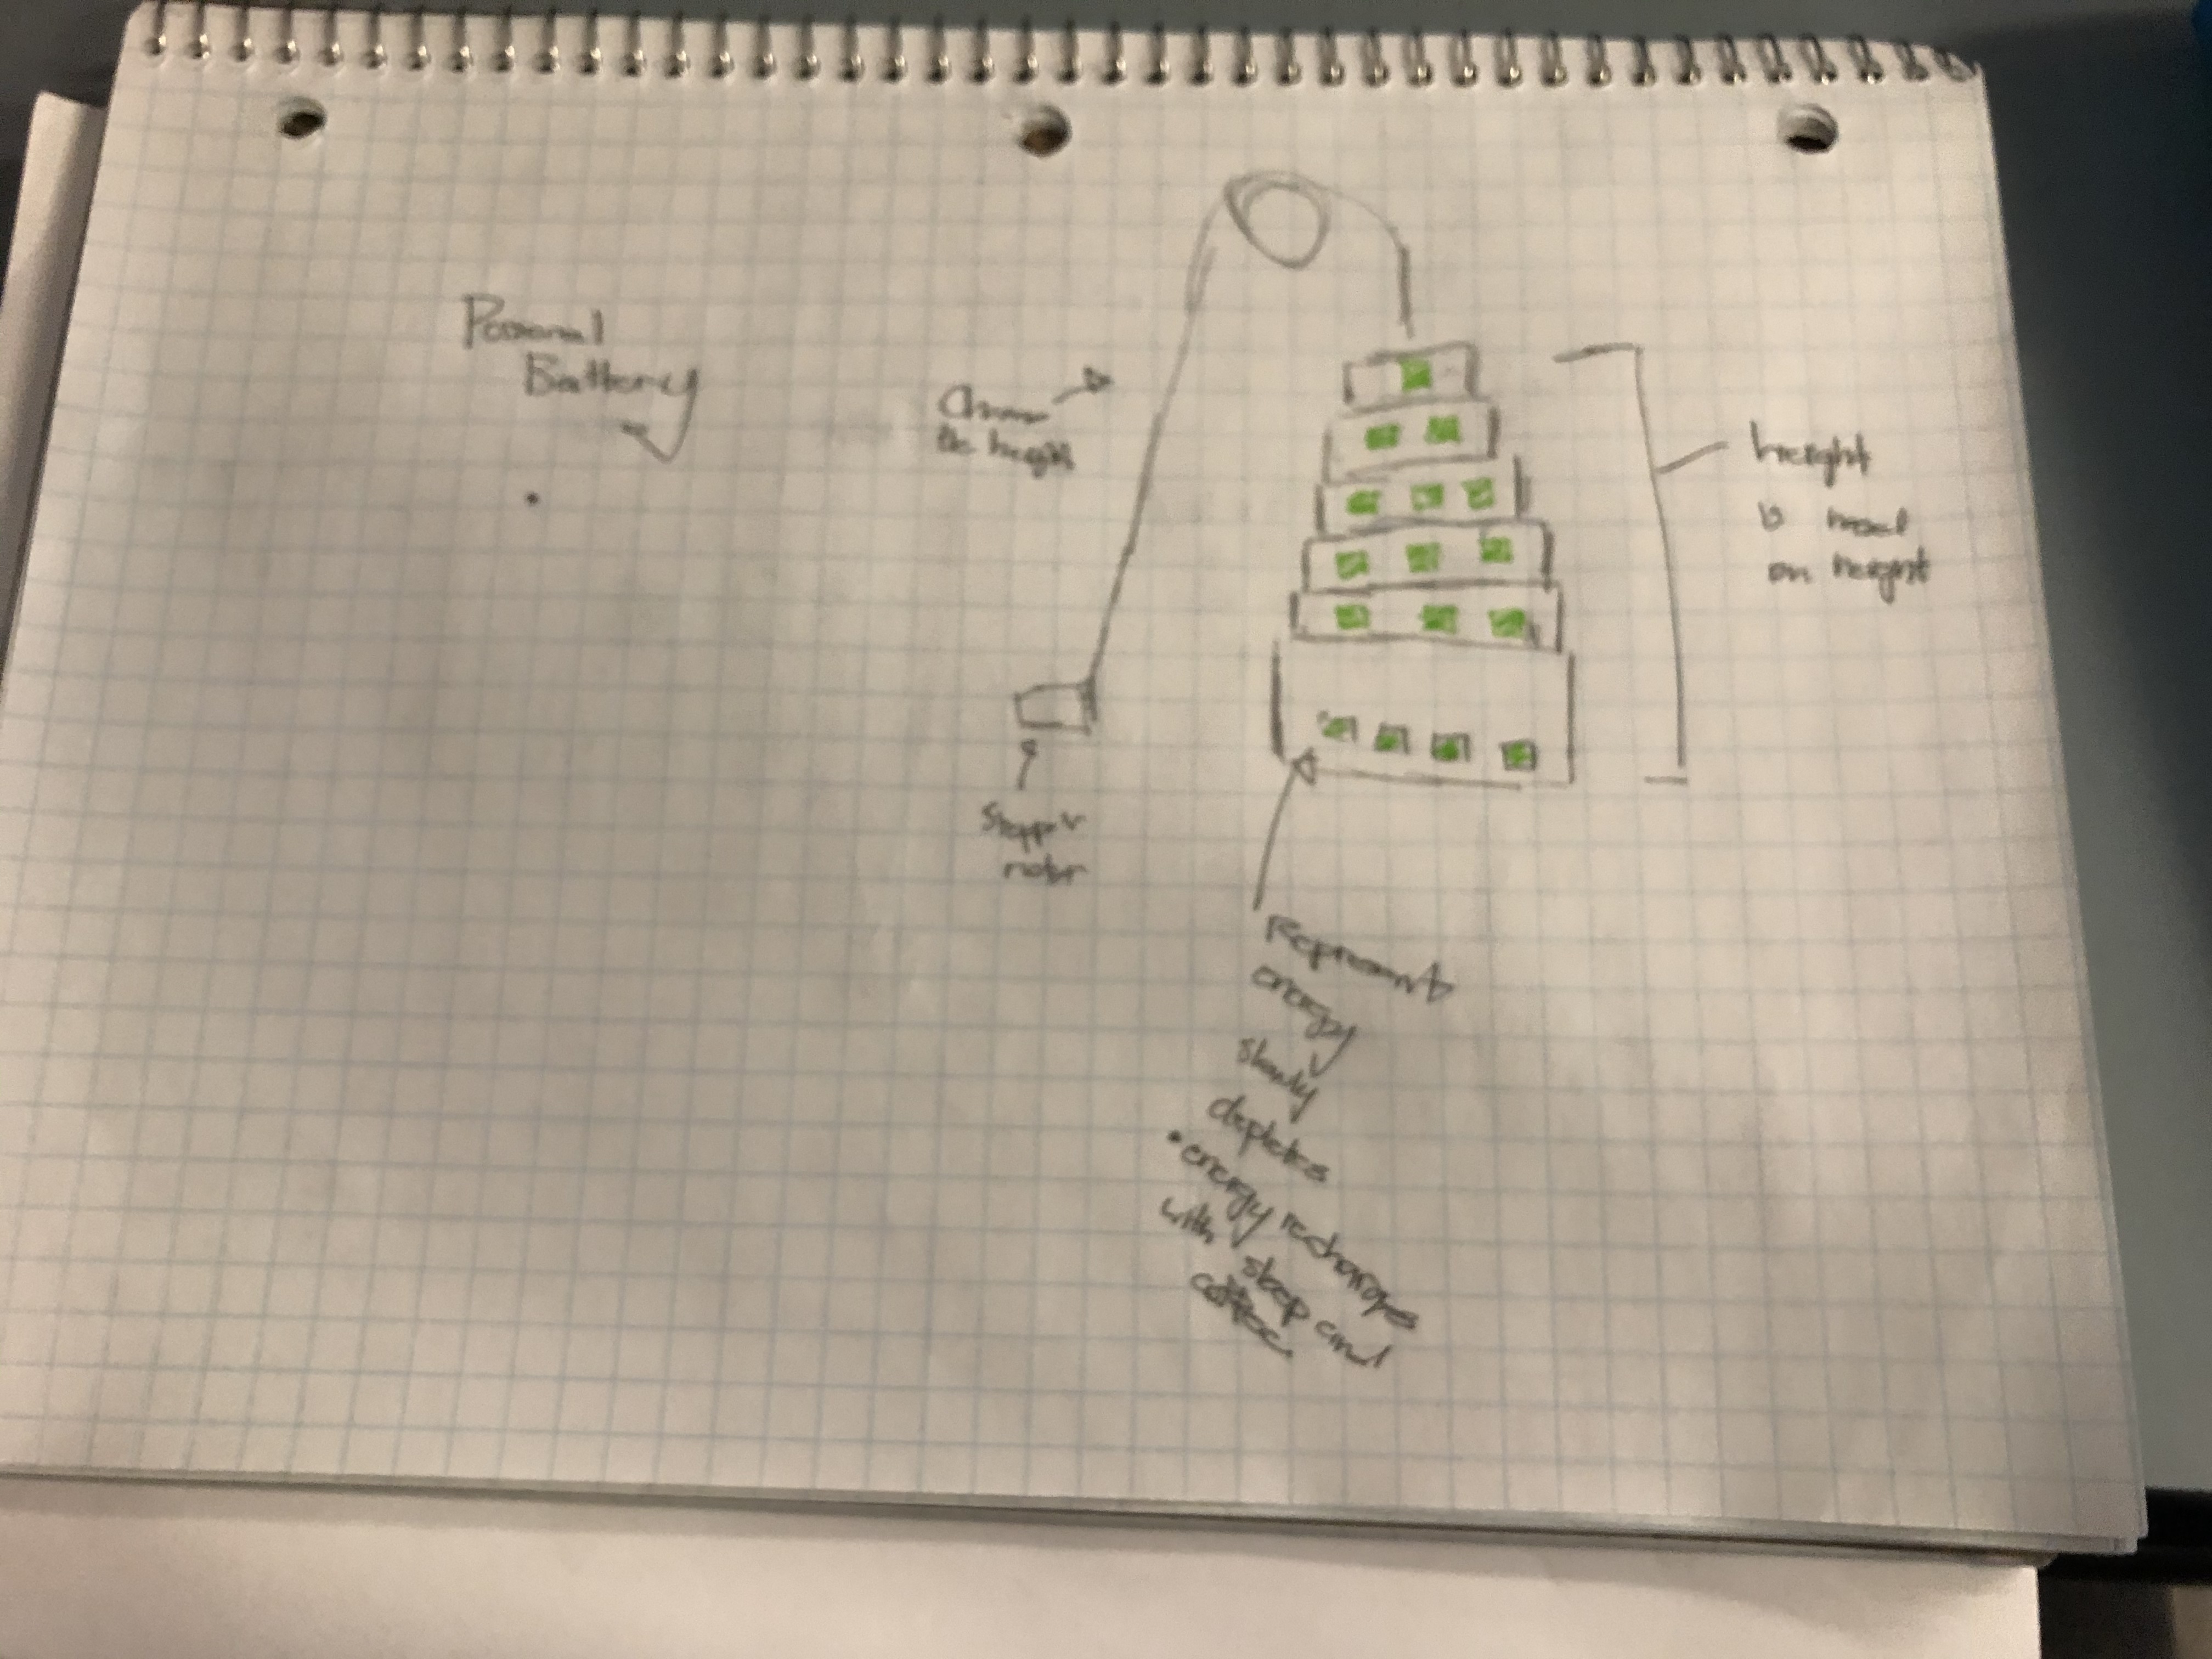 Personal
Battery
the height
height
on height
Stepper
motor
Represents
energy
slowly
depletes
• energy recharges
with sleep and
coffee